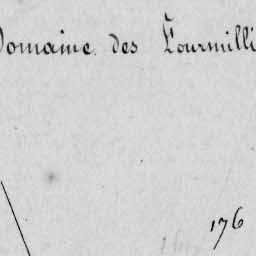 Domaine des Fourmilli
176